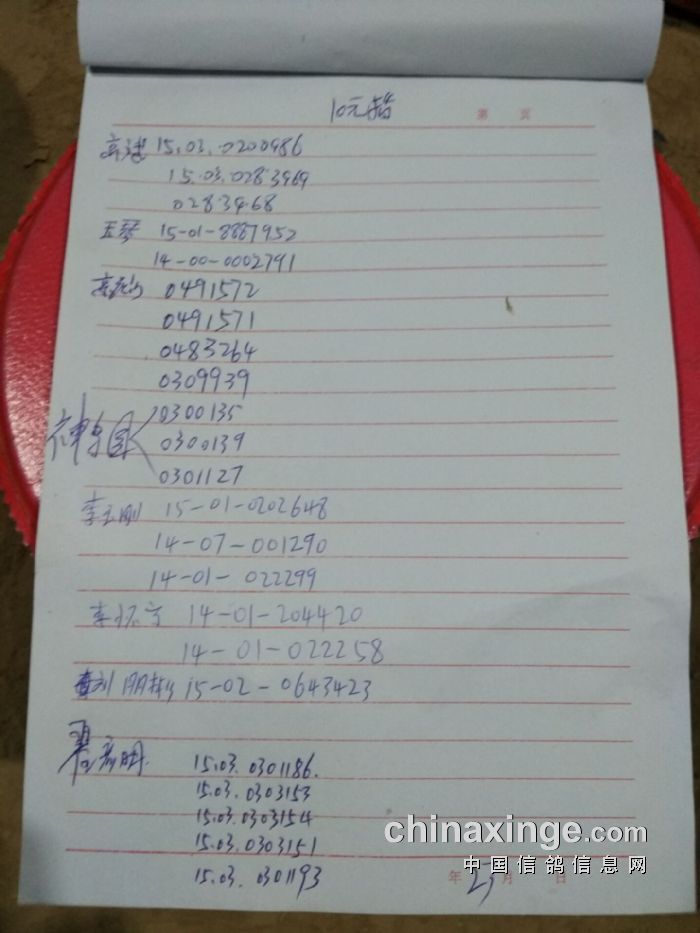 10元 第 页
15.03.0200986
15.03.0283969
0283968
王琴 15-01-8887952
14-00-0002791
0491572
0491571
0483264
0309939
0300135
神 国 0300139
0301127
李玉刚 15-01-0202648
14-07-001290
14-01-022299
李怀 14-01-204420
14-01-022258
刘朋 15-02-0643423
翟 明 15.03.0301186.
15.03.0303153
15.03.0303154
15.03.0303151
15.03.0301193
chinaxinge.com
中国信鸽信息网
年 月 日